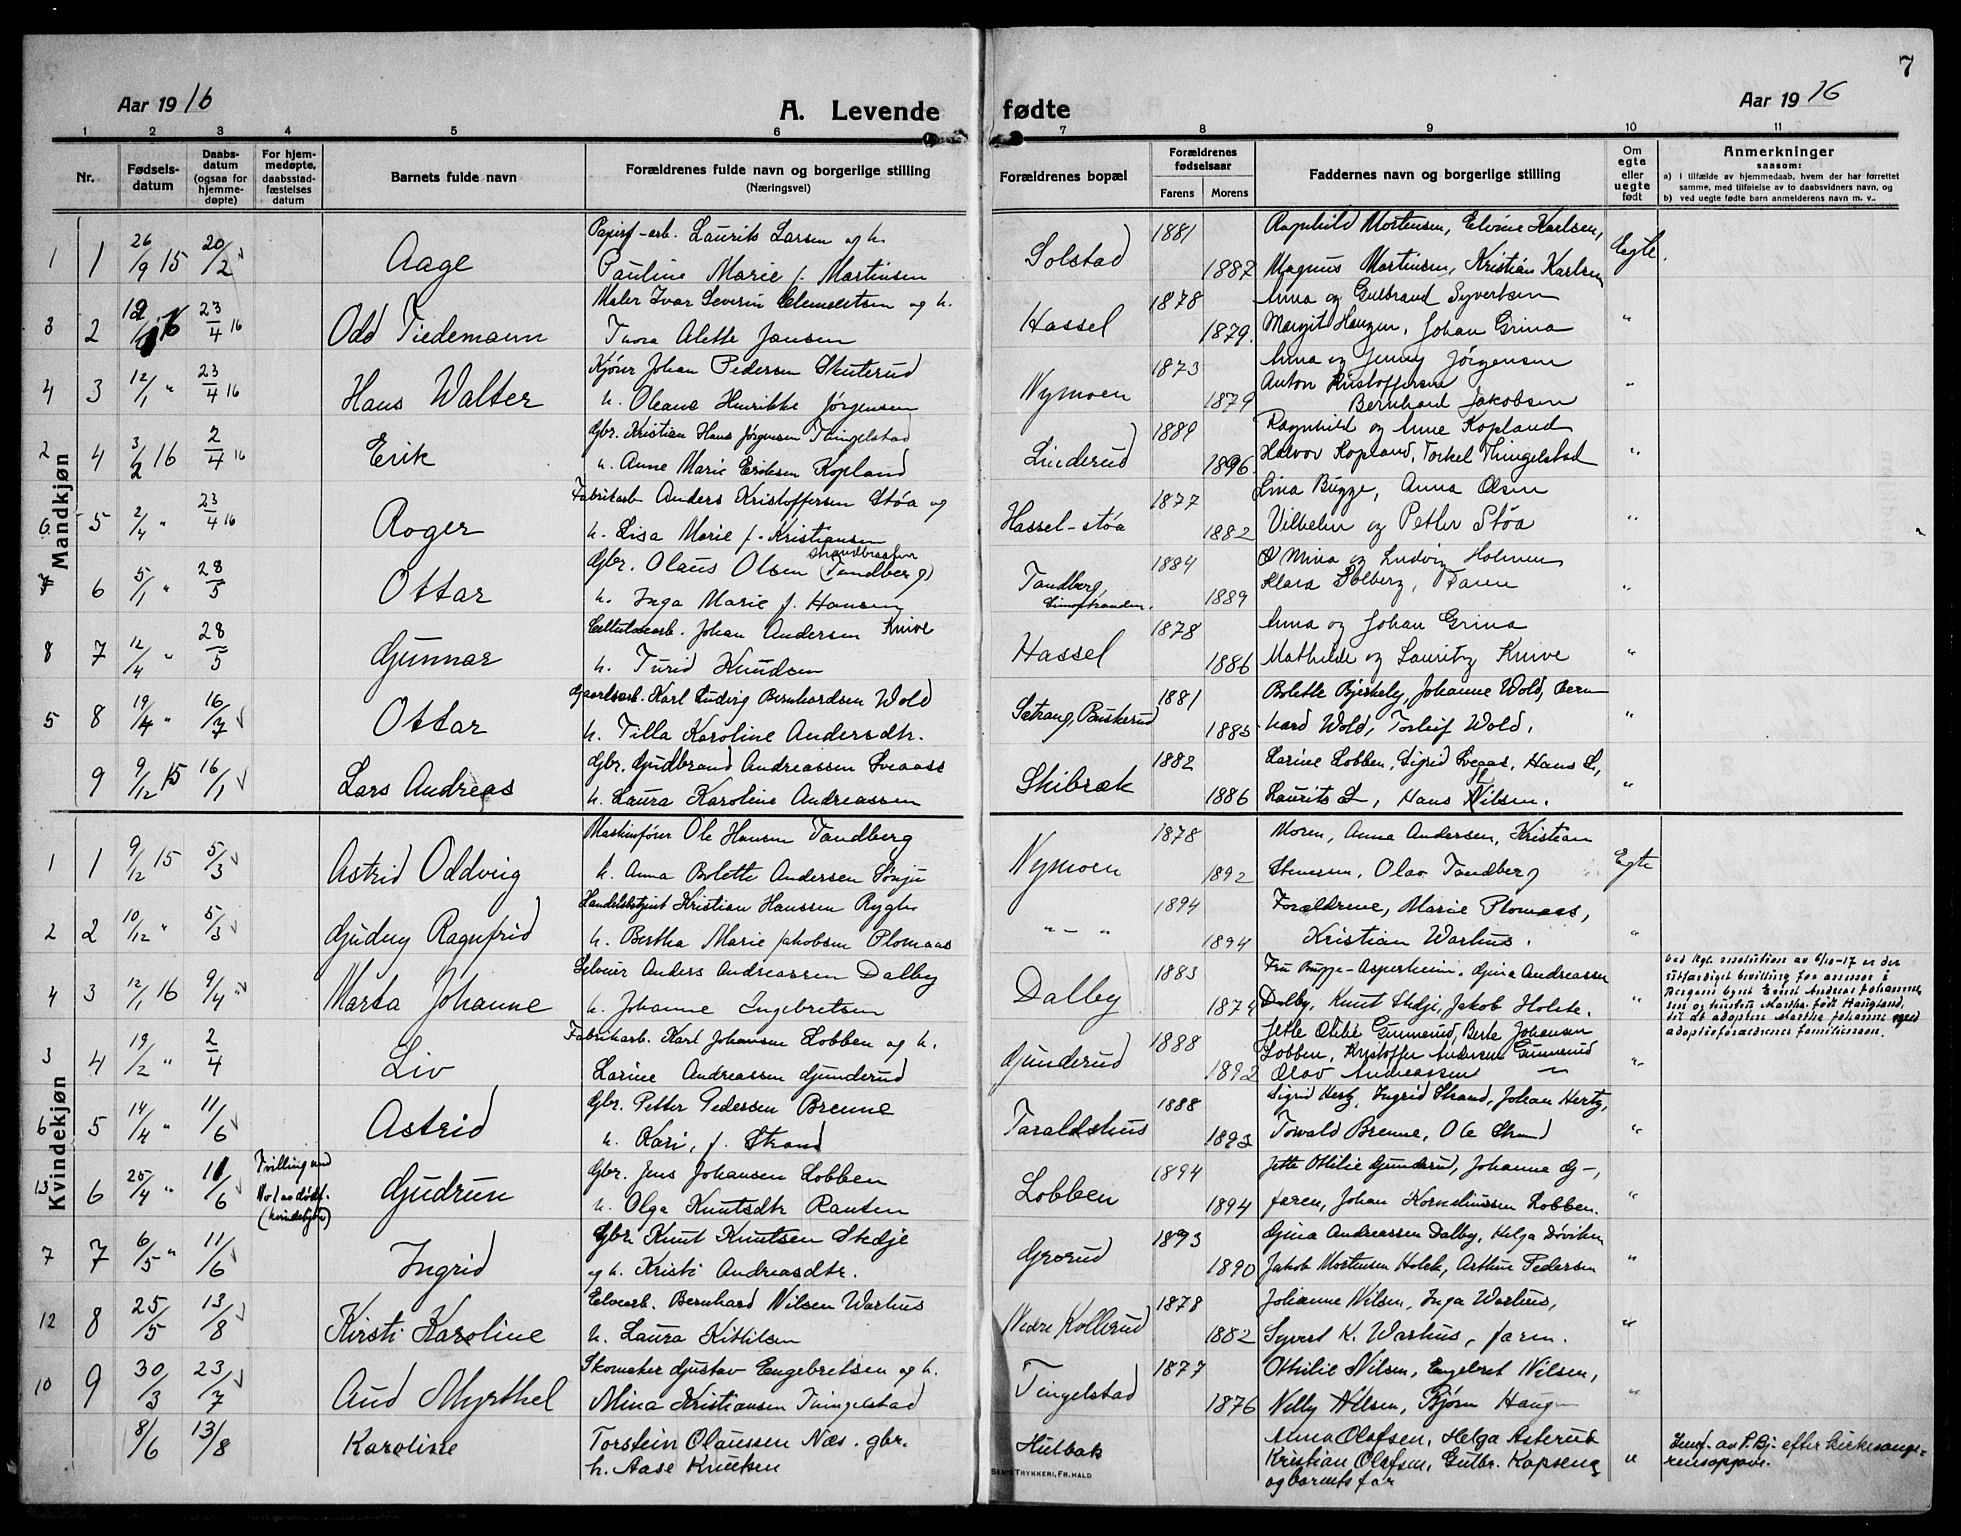 7
Aar 1916
A. Levende fødte
Aar 1916
1 2 3 4 5 6 7 8 9 10 11
Nr.
Fødsels-
datum
Daabs-
datum
(ogsaa for
hjemme-
døpte)
For hjem-
medøpte,
daabsstad-
fæstelses
datum
Barnets fulde navn
Forældrenes fulde navn og borgerlige stilling
(Næringsvei)
Forældrenes bopæl
Forældrenes
fødselsaar
Farens Morens
Faddernes navn og borgerlige stilling
Om
egte
eller
uegte
født
Anmerkninger
saasom:
a) i tilfælde av hjemmedaab, hvem der har forrettet
samme, med tilføielse av to daabsvidners navn, og
b) ved uegte fødte barn anmelderens navn m. v..
Mandkjøn
1 1 26/9 15 20/2 Aage
Papirf-arb. Laurits Larsen og h.
Pauline Marie f. Martinsen
Solstad 1881 1887
Ragnhild Mortensen, Elvine Karlsen,
Magnus Martinsen, Kristian Karlsen
Egte.
3 2 16 23/4 16 Odd Tiedemann
Maler Ivar Severin Clemetsen og h.
Thora Alette Jansen
Hassel 1878 1879.
Anna og Gulbrand Syvertsen
Margit Hanzen, Johan Grina
"
4 3 12/1 " 23/4 16 Hans Walter
Kjører Johan Pedersen Skuterud
h. Oleane Henrikke Jørgensen
Nymoen 1873 1879
Anna og Jenny Jørgensen
Anton Kristoffersen
Bernhard Jakobsen
"
2 4 3/2 16 2/4 16 Erik
Gbr. Kristian Hans Jørgensen Thingelstad
h. Anne Marie Eriksen Kopland
Linderud 1889 1896.
Ragnhild og Anne Kopland
Halvor Kopland, Torkel Thingelstad
"
6 5 2/4 " 23/4 16 Roger
Fabrikarb Anders Kristoffersen Støa og
h. Lisa Marie f. Kristiansen
Hassel-støa 1877 1882
Lina Bugge, Anna Olsen
Vilhelm og Petter Støa
"
7 6 5/1 " 28/5 Ottar
Gbr. Olaus Olsen (Tandberg)
h. Inga Marie f. Hansen
Tandberg, Simostranden. 1884 1889
Mina og Ludvig Holmen
Klara Solberg,
"
8 7 12/4 " 28/5 Gunnar
Cellulosearb. Johan Andersen Knive
h. Turid Knudsen
Hassel 1878 1886
Anna og Johan Grina
Mathilde og Lauritz Knive
"
5 8 19/4 " 16/7 Ottar
Gaardsarb. Karl Ludvig Bernhardsen Wold
h. Tilla Karoline Andersdtr.
Sætrang, Buskerud 1881 1885
Bolette Bjerkely, Johanne Wold, Bern
hard Wold, Torleif Wold.
"
9 9/12 15 16/1 Lars Andreas
Gbr. Gudbrand Andreassen Sveaass
h. Laura Karoline Andreassen
Skibræk 1882 1886
Karine Lobben, Sigrid Sveaas, Hans S.,
Laurits S., Hans Nilsen.
"
Kvindekjøn
1 1 9/12 15 5/3 Astrid Oddveig
Maskinfører Ole Hansen Tandberg
h. Anna Bolette Andersen Sønju
Nymoen 1878 1892
Moren, Anna Andersen, Kristian
Stenersen, Olav Tandberg
Egte
2 2 10/12 " 5/3 Gudny Ragnfrid
Handelsbetjent Kristian Hanssen Rygh
h. Bertha Marie Jakobsen Plomaas
" - " 1894 1894
Forældrene, Marie Plomaas,
Kristian Warhus.
"
4 3 12/1 16 9/4 Marta Johanne
Elveier Anders Andreassen Dalby
h. Johanne Ingebretsen
Dalby 1883 1874
Fru Bugge-Asperheim, Gina Andreassen
Dalby, Knut Skedje, Jakob Holste.
"
ved kgl. resolution av 6/10-17 er der
utfærdiget bevilling for
Bergens byret Ernst Andreas Johannes
sen og hustru Martha, født Haugland,
til at adoptere Martha Johanne med
adoptivforældrenes familienavn.
3 4 19/2 " 2/4 Liv
Fabrikarb. Karl Johansen Lobben og h.
Karine Andreassen Gunderud
Gunderud 1888 1892
Jette Otilie Gunnerud, Berte Johansen
Lobben, Kristoffer Andersen Gunnerud
Olav Andreassen —
"
6 5 14/4 " 11/6 Astrid
Gbr. Petter Pedersen Brenne
h. Kari, f. Strand
Taraldshus 1888 1893
Sigrid Hertz, Ingrid Strand, Johan Hertz,
Torvald Brenne, Ole Strand
"
13 6 25/4 " 11/6 Tvilling med
Gudrun
Gbr. Jens Johansen Lobben
h. Olga Knutsdtr Ranten
Lobben 1894 1894
Jette Othilie Gunderud, Johanne G-,
faren, Johan Korneliussen Lobben.
"
7 7 6/5 " 11/6 Ingrid
Gbr. Knut Knutsen Skedje
og h. Kristi Andreasdtr.
Grorud 1893 1890
Gina Andreassen Dalby, Helga Døviken
Jakob Mortensen Holck, Arthur Pedersen
"
12 8 25/5 13/8 Kirsti Karoline
Elvearb. Bernhard Nilsen Warhus
h. Laura Kittilsen
Nedre Kollerud 1878 1882
Johanne Nilsen, Inga Warhus,
Syvert K. Warhus, faren.
"
10 9 30/3 23/7 Aud Myrthel
Skomaker Gustav Engebretsen og h.
Mina Kristiansen Thingelstad
Tingelstad 1877 1876
Othilie Nilsen, Engebret Nilsen,
Nelly Nilsen, Bjørn Haugen
"
8/6 13/8 Karoline
Torstein Olaussen Næs. gbr.
h. Aase Knutsen
Hulbak
Anna Olafsen, Helga Asterud
Kristian Olafsen, Gutbr. Kopseng
og barnets far
"
Innf. av P.Bj. efter kirkesange-
rens opgave.
SEMS TRYKKERI, FR.HALD